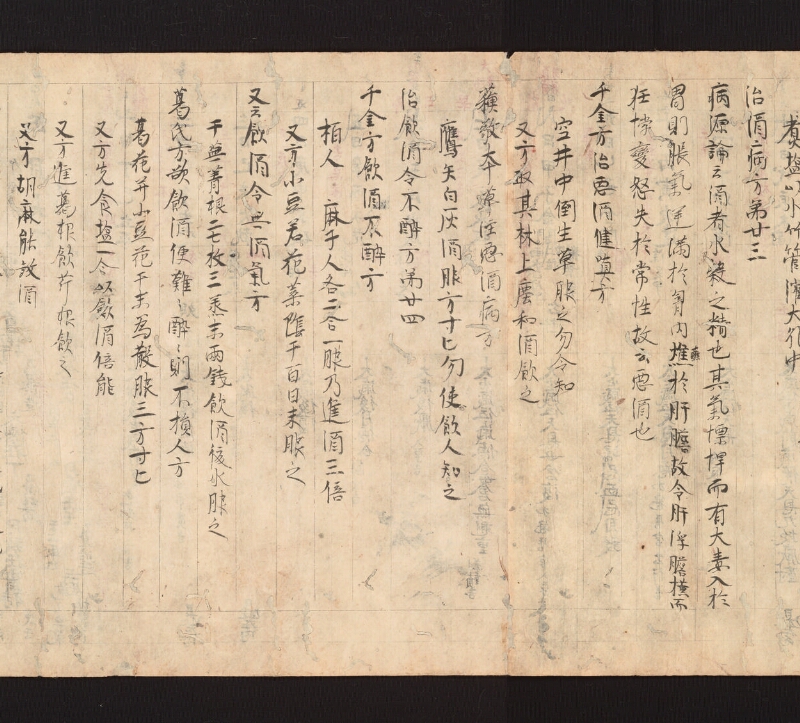 煮塩以水竹管灌大孔中
治酒病方第廿三
病源論云酒者水穀之精也其氣慓悍而有大毒入於
胃則脹氣逆滿於胸內 於肝膽故令肝浮膽橫而
狂悖變怒失於常性故云惡酒也
千金方治惡酒健嗔方
空井中倒生草服之勿令知
又方取其床上塵和酒飲之
蘓敬本草注惡酒病方
鷹矢白灰酒服方寸匕勿使飲人知之
治飲酒令不醉方第廿四
千金方飲酒不醉方
柏人 麻子人各二合一服乃進酒三倍
又方小豆若花葉陰干百日末服之
又云飲酒令無酒氣方
干蕪菁根二七枚三蒸末兩錢飲酒後水服之
葛氏方欲飲酒便難醉則不損人方
葛花并小豆花干末為散服三方寸匕
又方先食塩一合以飲酒倍能
又方進葛根飲芹根飲之
又方胡麻能殺酒